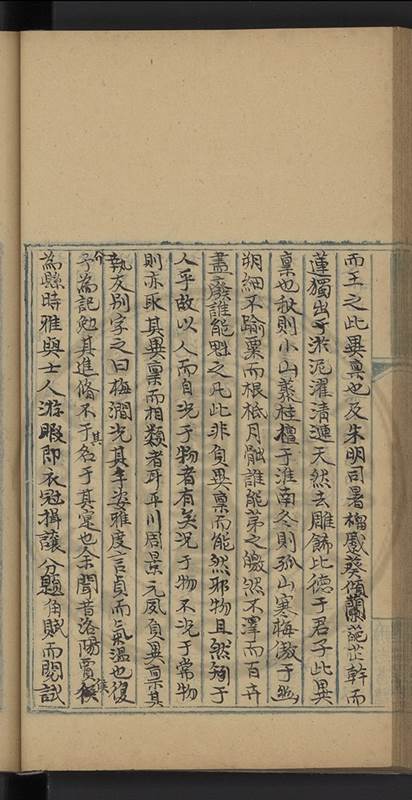 而王之此異稟也及朱明司暑榴慼葵傾蘭苑芷幹而
蓮獨出于淤泥濯清漣天然去雕飾比德于君子此異
稟也秋則小山叢桂檀于淮南冬則孤山寒梅傲于幽
朔細不踰粟而根柢月髄誰能弟之皦然不滓而百卉
盡廢誰能魁之凡此非負異稟而能然耶物且然矧于
人乎故以人而自况于物者有矣况于物不况于常物
則亦取其異稟而相類者耳平川周景元夙負異稟其
執友別字之曰梅澗光其丰姿雅度言貞而氣溫也復
介予為記勉其進脩不于其名于其寔也余聞昔洛陽賈候侯
為縣時雅與士人游暇即衣冠揖讓分題角賦而閱試